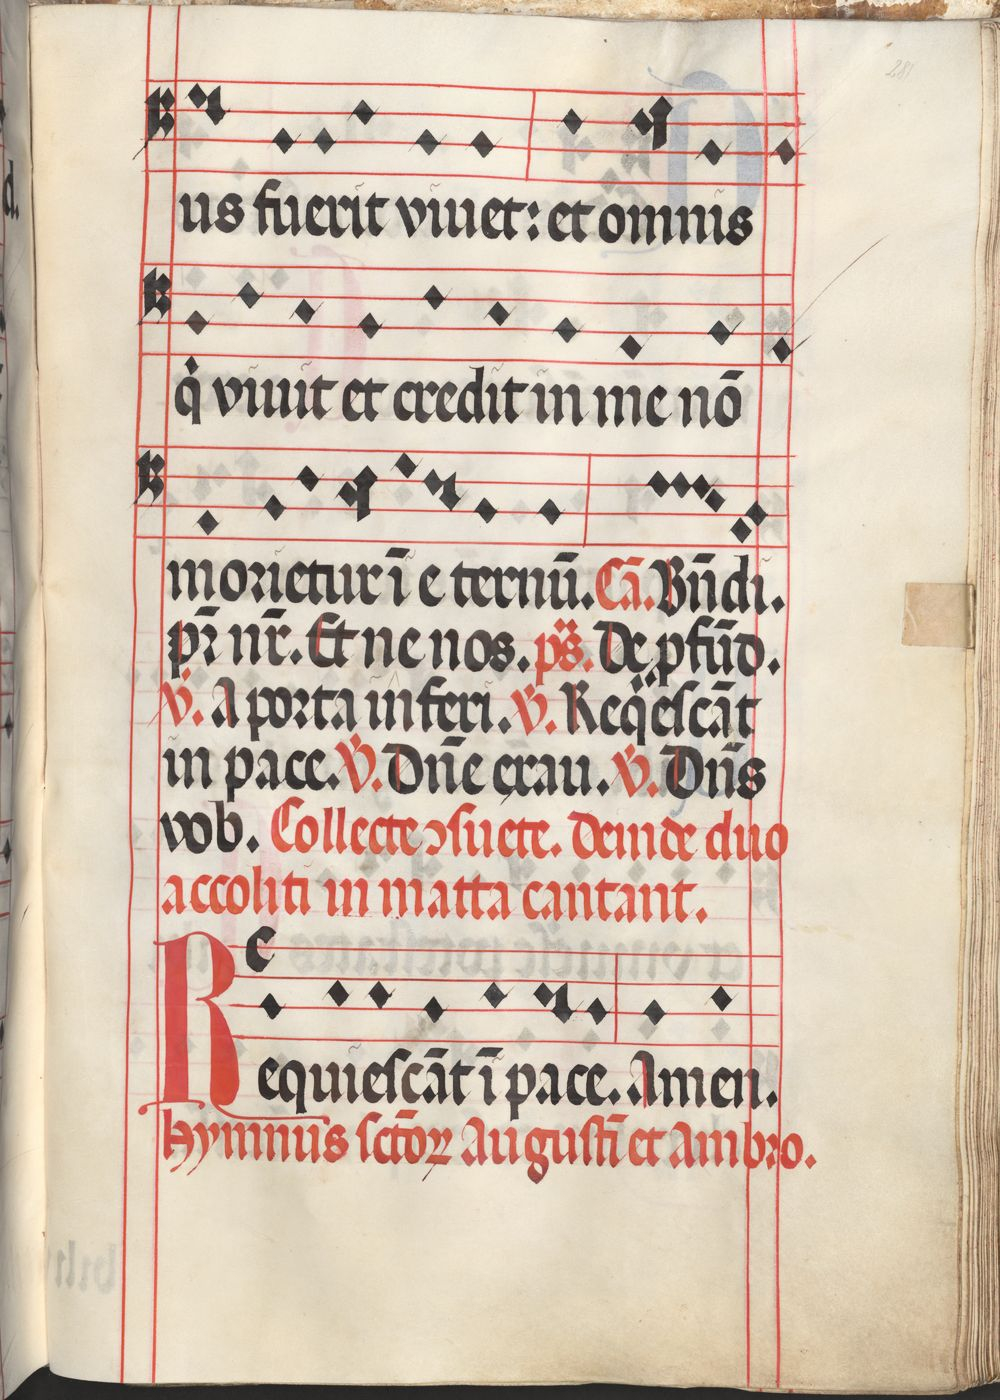 281
us fuerit viuet: et omnis
q̇ viuit et credit in me nō
morietur ī e ternū. Cā. Bn̄di.
pr̄ nr̄. Et ne nos. ps̄. De pfūd.
v̇. A porta inferi. v̇. Reqescāt
in pace. v̇. Dn̄e exau. v̇. Dn̄s
vob. Collecte ↄsuete. Deinde duo
accoliti in matta cantant.
e
Requiescāt ī pace. Amen.
Hymnus sctōꝝ Augusti et Ambro.